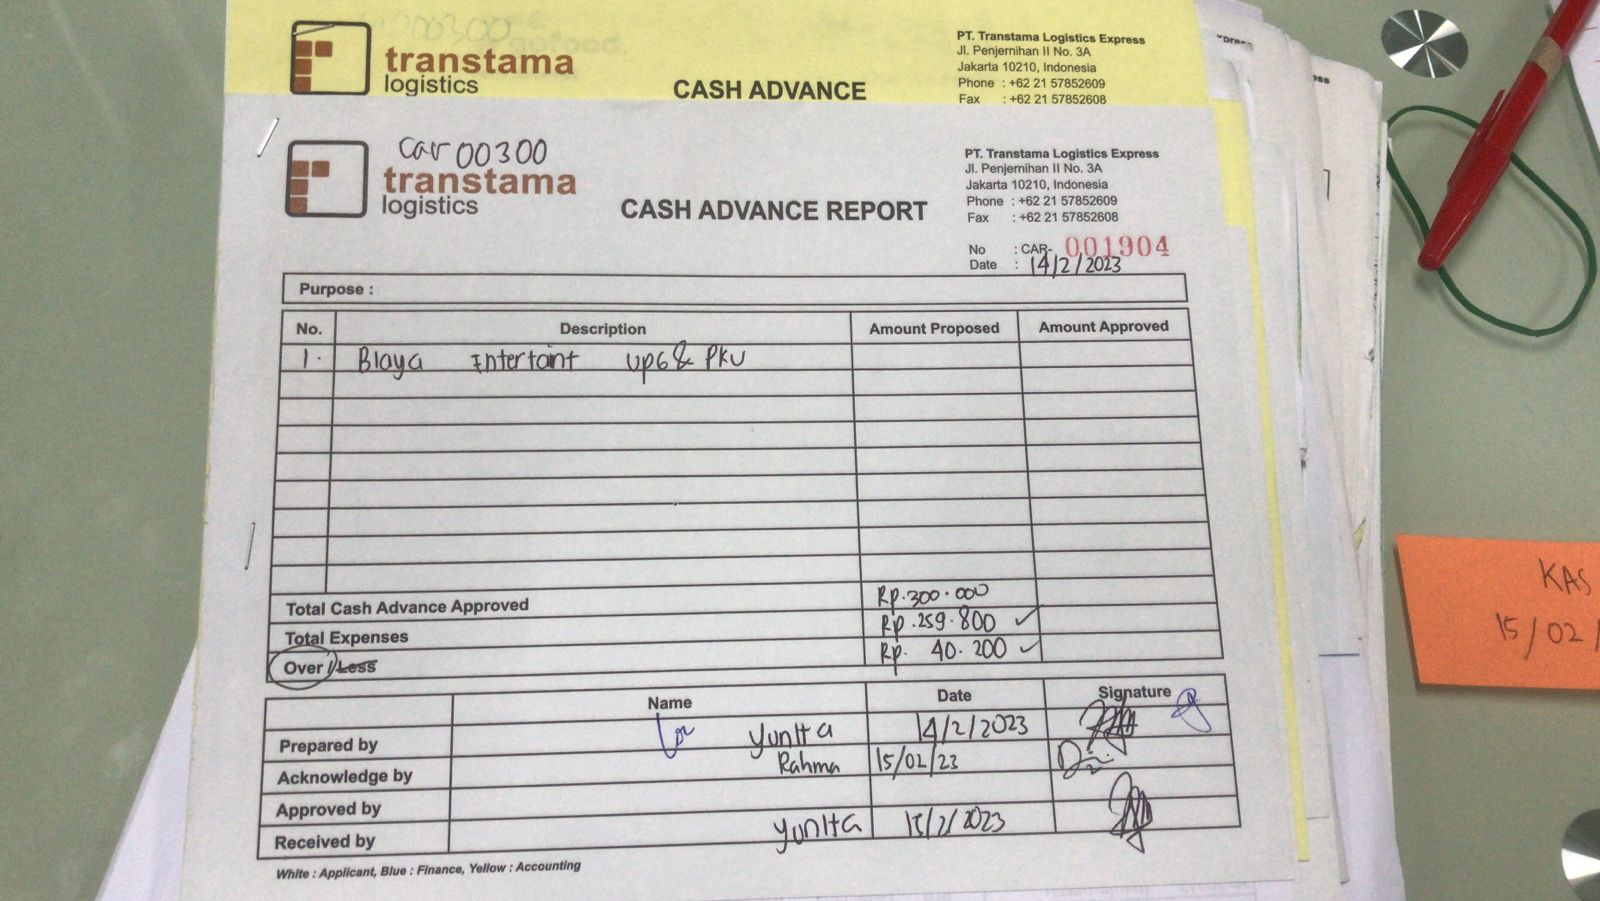 transtama
logistics
CASH ADVANCE
PT. Transtama Logistics Express
Jl. Penjernihan II No. 3A
Jakarta 10210, Indonesia
Phone : +62 21 57852609
Fax : +62 21 57852608
Car 00300
transtama
logistics
CASH ADVANCE REPORT
PT. Transtama Logistics Express
Jl. Penjernihan II No. 3A
Jakarta 10210, Indonesia
Phone : +62 21 57852609
Fax : +62 21 57852608
No : CAR- 001904
Date : 14/2/2023
Purpose :
No. Description Amount Proposed Amount Approved
1. Biaya Intertaint UPG & PKU
Total Cash Advance Approved Rp. 300.000
Total Expenses Rp. 259.800
Over / Less Rp. 40.200
Name Date Signature
Prepared by Yunita 14/2/2023
Acknowledge by Rahma 15/02/23
Approved by
Received by Yunita 15/2/2023
White : Applicant, Blue : Finance, Yellow : Accounting
KAS
15/02/